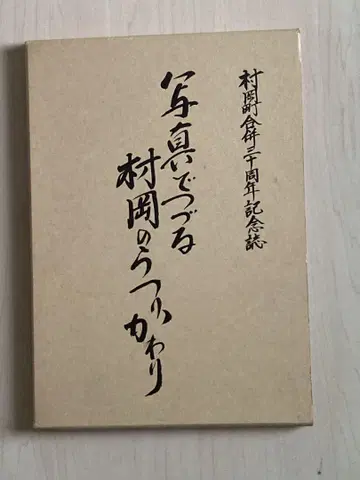 村岡町合併三十周年記念誌
写真でつづる
村岡のうつりかわり